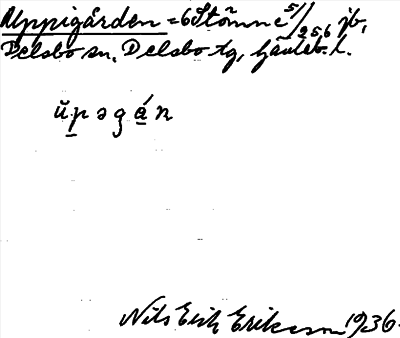 Uppigården = 6 Stömne 5/256 jb,
Delsbo sn, Delsbo tg, Gävleb. l.
ŭpəgán
Nils Erik Eriksson 1936.